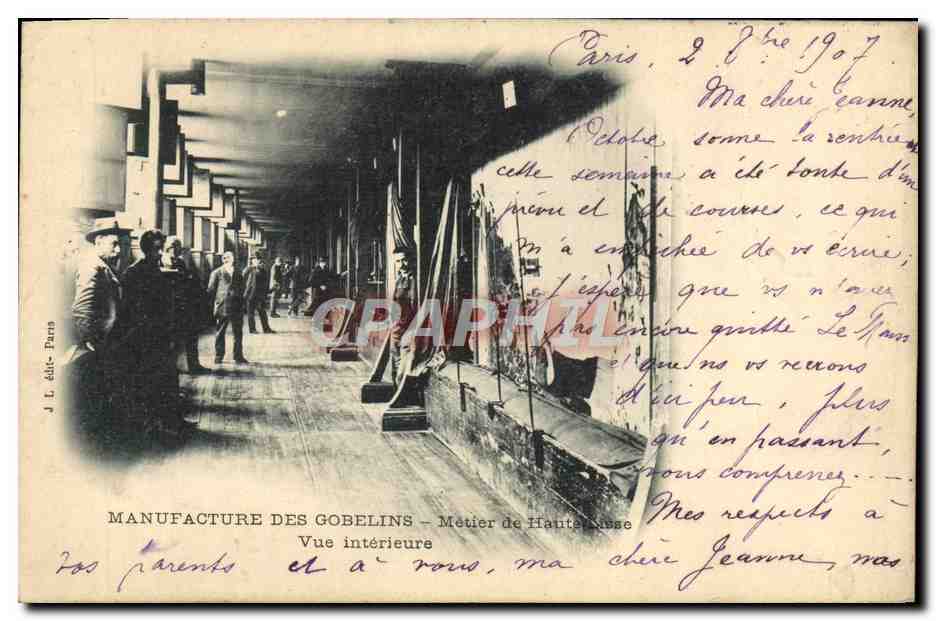 Paris, 2 8bre 1907
Ma chère Jeanne,
Octobre sonne la rentrée
cette semaine a été toute d'im
prévu et de courses, ce qui
m'a empêchée de vs écrire;
j'espère que vs n'avez
pas encore quitté Le Mans
et que ns vs reverrons
d'ici peu, plus
qu'en passant,
vous comprenez....
Mes respects à
vos parents et à vous, ma chère Jeanne, mes
CPAPHIL
J L édit- Paris
MANUFACTURE DES GOBELINS - Métier de Haute Lisse
Vue intérieure